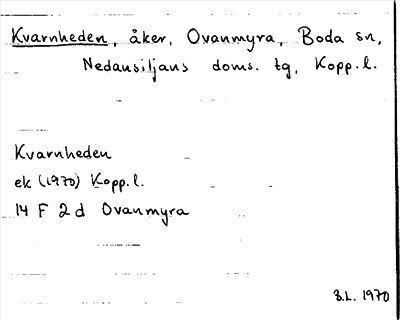 Kvarnheden, åker, Ovanmyra, Boda sn,
Nedansiljans doms. tg, Kopp. l.
Kvarnheden
ek (1970) Kopp. l.
14 F 2 d Ovanmyra
B.L. 1970